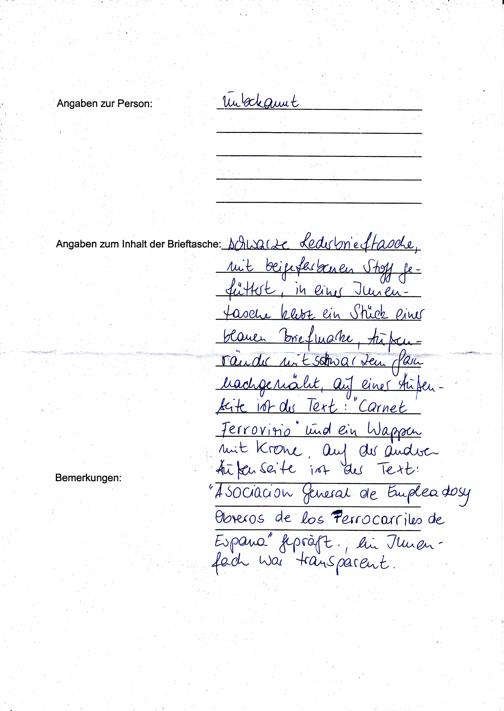 Angaben zur Person: Unbekannt
Angaben zum Inhalt der Brieftasche: schwarze Lederbrieftasche,
mit beigefarbenen Stoff ge-
füttert, in einer Innen-
tasche klebt ein Stück einer
blauen Briefmarke, Außen-
ränder mit schwarzem Garn
nachgenäht, auf einer Außen-
seite ist der Text: "Carnet
Ferrovirio" und ein Wappen
mit Krone, auf der anderen
Außenseite ist der Text:
Bemerkungen:
"Asociacion General de Empleadosy
Obreros de los Ferrocarriles de
Espana" geprägt., ein Innen-
fach war transparent.